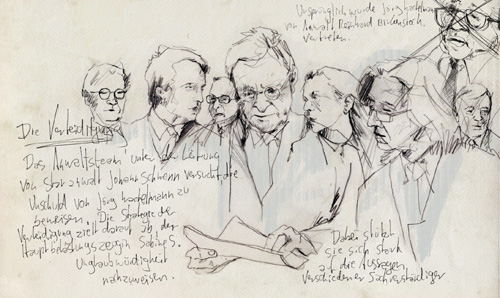 Ursprünglich wurde Jörg Kachelmann
von Anwalt Reinhard Birkenstock
vertreten.
Die Verteidigung
Das Anwaltsteam unter der Leitung
von Staranwalt Johann Schwenn versucht, die
Unschuld von Jörg Kachelmann zu
beweisen. Die Strategie der
Verteidigung zielt darauf ab, der
Hauptbelastungszeugin Sabine S.
Unglaubwürdigkeit
nachzuweisen.
Dabei stützt
sie sich stark
auf die Aussagen
verschiedener Sachverständiger